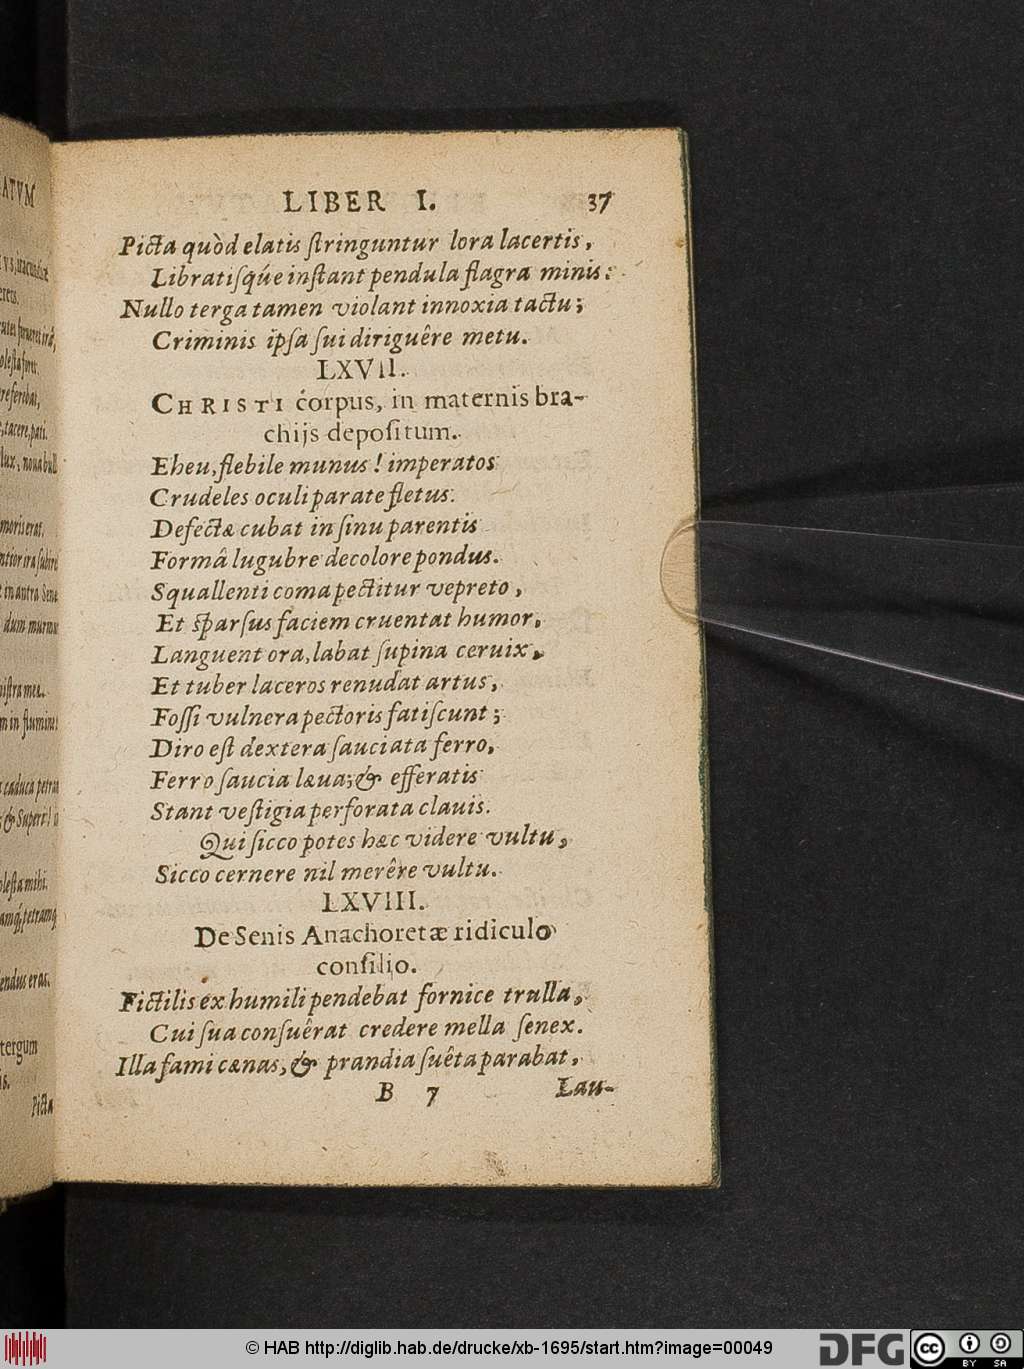 ATVM
LIBER I. 37
Picta quòd elatis ſtringuntur lora lacertis,
Libratiſq́ue inſtant pendula flagra minis:
Nullo terga tamen violant innoxia tactu;
Criminis ipſa ſui diriguêre metu.
LXVII.
CHRISTI corpus, in maternis bra-
chijs depoſitum.
Eheu, flebile munus! imperatos
Crudeles oculi parate fletus.
Defectæ cubat in ſinu parentis
Formâ lugubre decolore pondus.
Squallenti coma pectitur vepreto,
Et ſparſus faciem cruentat humor,
Languent ora, labat ſupina ceruix,
Et tuber laceros renudat artus,
Foſſi vulnera pectoris fatiſcunt;
Diro eſt dextera ſauciata ferro,
Ferro ſaucia læua; & efferatis
Stant veſtigia perforata clauis.
Qui ſicco potes hæc videre vultu,
Sicco cernere nil merêre vultu.
LXVIII.
De Senis Anachoretæ ridiculo
conſilio.
Fictilis ex humili pendebat fornice trulla,
Cui ſua conſuêrat credere mella ſenex.
Illa fami cænas, & prandia ſuêta parabat,
B 7 Lau-
tergum
Picta
© HAB http://diglib.hab.de/drucke/xb-1695/start.htm?image=00049
DFG
cc BY SA